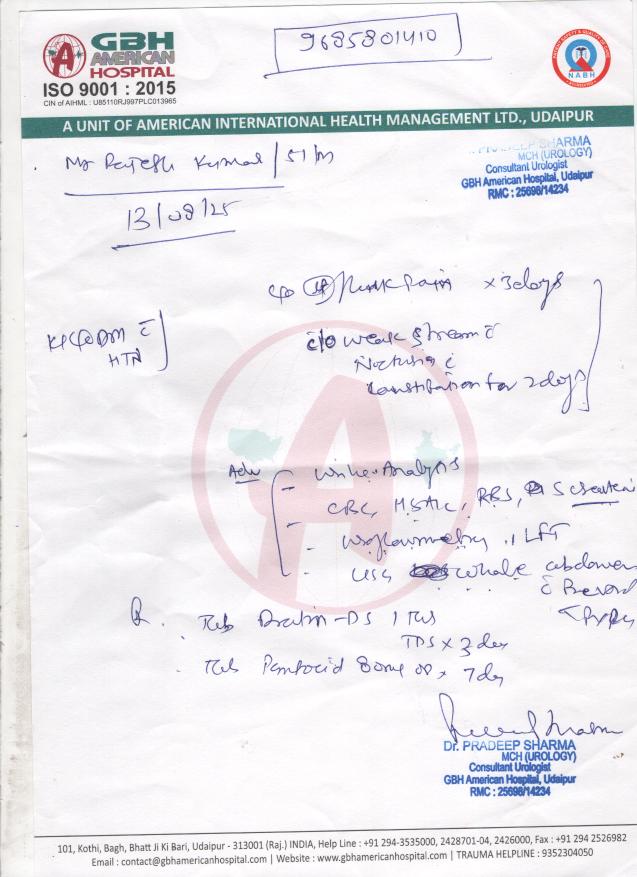 GBH
AMERICAN
HOSPITAL
ISO 9001 : 2015
CIN of AIHML : U85110RJ997PLC013965
9685801410
NABH
A UNIT OF AMERICAN INTERNATIONAL HEALTH MANAGEMENT LTD., UDAIPUR
Mr Rajesh Kumar / 51/m
13/08/25
PRADEEP SHARMA
MCH (UROLOGY)
Consultant Urologist
GBH American Hospital, Udaipur
RMC : 25698/14234
c/o Flank Pain x 3days
K/c/o DM c̄
HTN
c/o weak stream c̄
Nocturia c̄
for 2days
Adv
- Urine Analysis
CBC, HbA1c, RBS, S creatinine
- Uroflowmetry, LFT
- USG whole abdomen
c̄ Prevoid
Rx
Tab -DS 1 Tab
TDS x 3 day
Tab Pantocid 80mg OD x 7 day
Dr. PRADEEP SHARMA
MCH (UROLOGY)
Consultant Urologist
GBH American Hospital, Udaipur
RMC : 25698/14234
101, Kothi, Bagh, Bhatt Ji Ki Bari, Udaipur - 313001 (Raj.) INDIA, Help Line : +91 294-3535000, 2428701-04, 2426000, Fax : +91 294 2526982
Email : contact@gbhamericanhospital.com | Website : www.gbhamericanhospital.com | TRAUMA HELPLINE : 9352304050